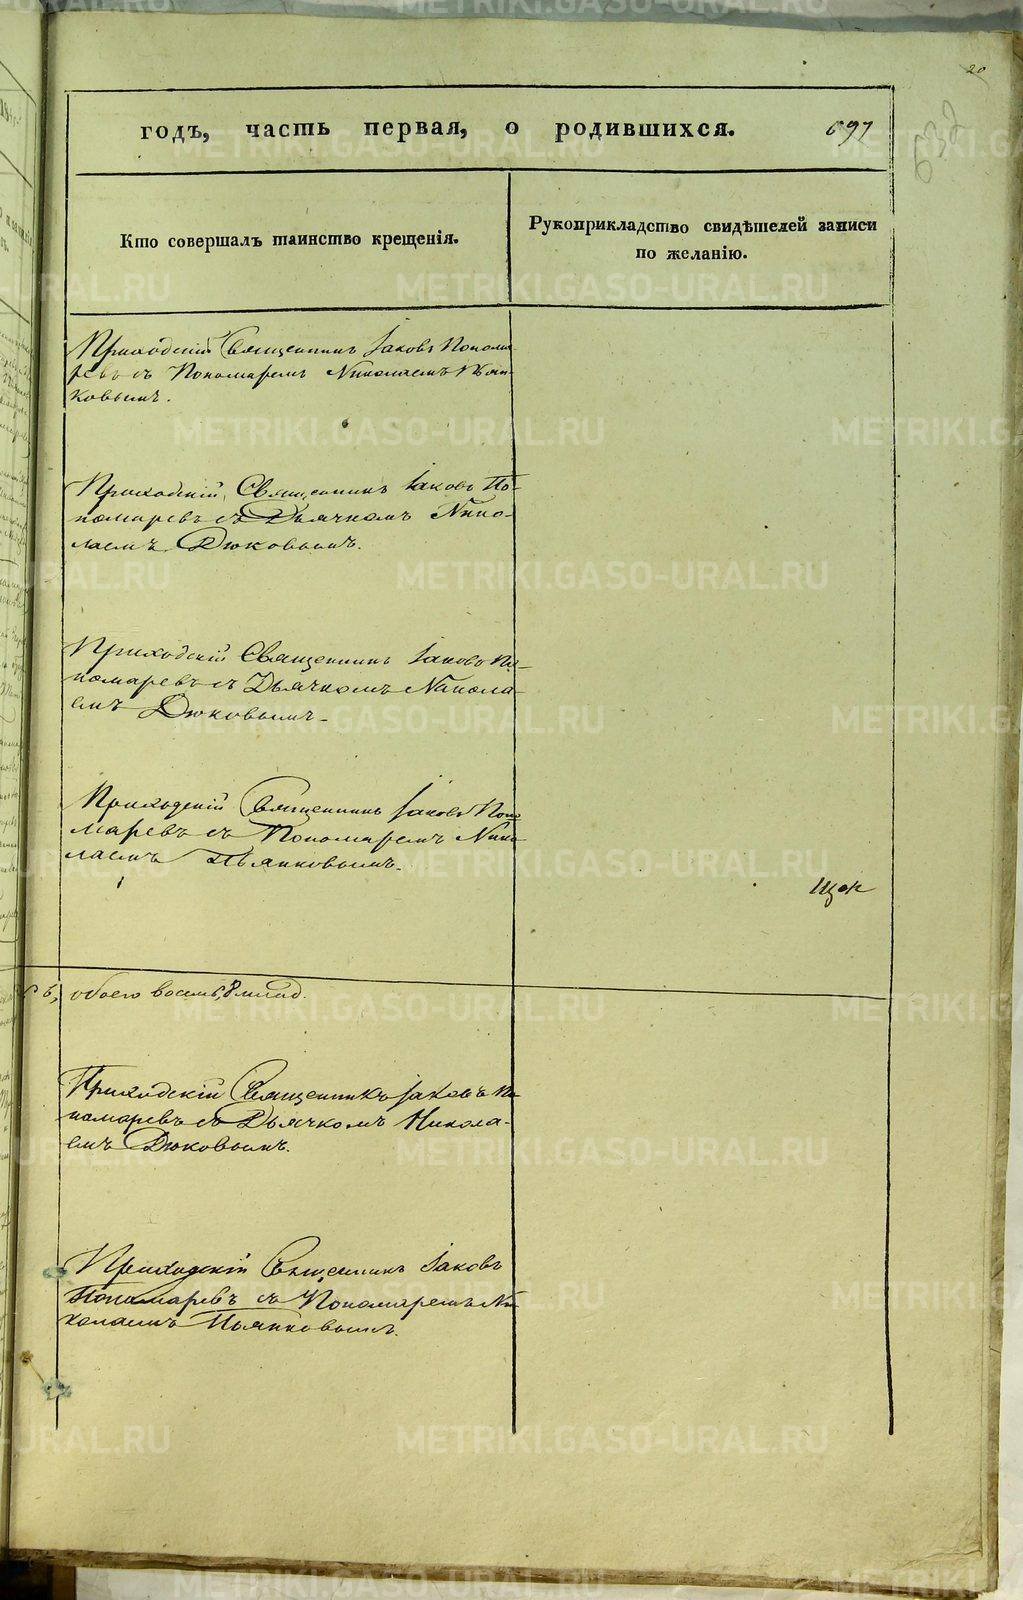 20
годъ, часть первая, о родившихся. 697
632
Кто совершалъ таинство крещенія.
Рукоприкладство свидѣтелей записи
по желанію.
Приходскій Священникъ Іаковъ Понома-
ревъ съ Пономаремъ Николаемъ Пьян-
ковымъ.
Приходскій Священникъ Іаковъ По-
номаревъ съ Дьячкомъ Нико-
лаемъ Дюковымъ.
Приходскій Священникъ Іаковъ По-
номаревъ съ Дьячкомъ Никола-
емъ Дюковымъ.
Приходскій Священникъ Іаковъ Поно-
маревъ съ Пономаремъ Нико-
лаемъ Пьянковымъ.
обоего восемь, 8 млад.
Приходскій Священникъ Іаковъ По-
номаревъ съ Дьячкомъ Никола-
емъ Дюковымъ.
Приходскій Священникъ Іаковъ
Пономаревъ съ Пономаремъ Ни-
колаемъ Пьянковымъ.
METRIKI.GASO-URAL.RU